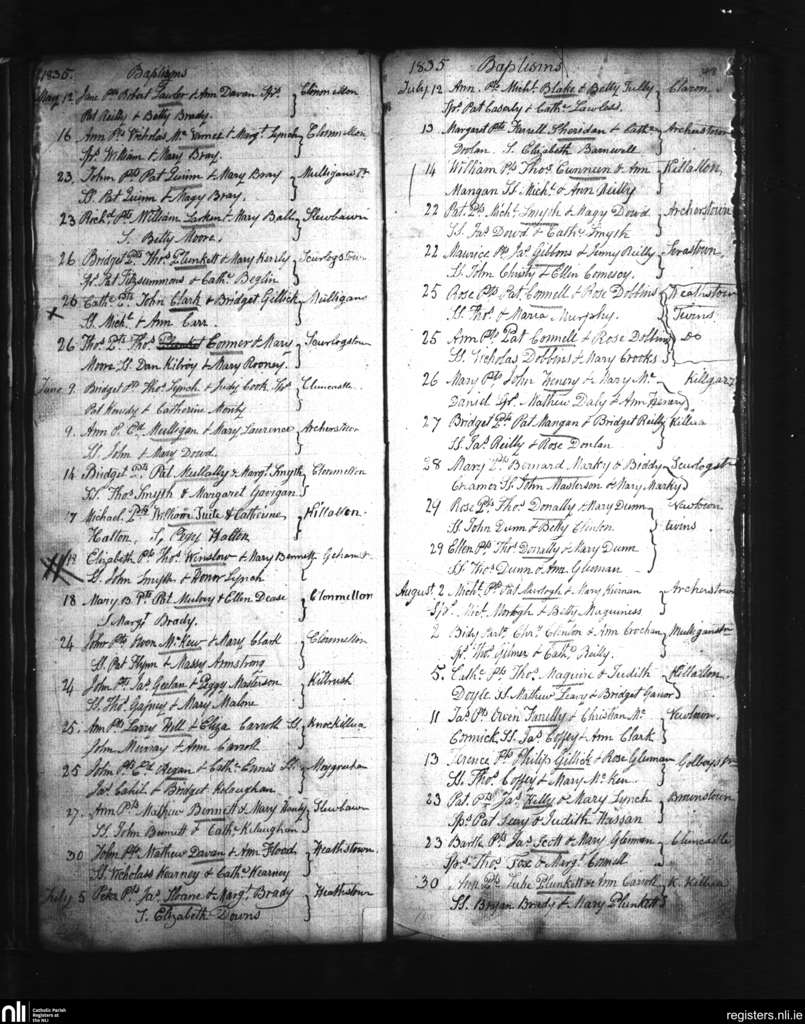 1835. Baptisms
May 12 Jane Pts Robert Lawlor & Ann Davan Sps. Clonmellon
Pat Reilly & Betty Brady.
16 Ann Pts Nicholas Mc & Margt. Lynch Clonmellon
Sps William & Mary Bray.
23 John Pts Pat Quinn & Mary Bray Mulliganst
SS. Pat Quinn & Nagy Bray.
23 Pts William Larkin & Mary Slewbawn
S. Betty Moore.
26 Bridget Pts Thos. Plunkett & Mary Scurlogstown
Sps. Pat Fitzsummons & Cathe. Beglin
26 Cathe. Pts John Clark & Bridget Gillick Mulligans
SS. Michl. & Ann Carr.
26 Thos. Pts. Thos. Conner & Mary Scurlogstown
Moore SS Dan Kilroy & Mary Rooney.
June 9 Bridget Pts Thos. Lynch & Judy Cook Cluncastle
Pat & Catherine
9. Ann P. Ed. Mulligan & Mary Laurence Archerstown
SS. John & Mary Dowd.
14 Bridget Pts Pat Mullally & Margt. Smyth Clonmellon
SS. Thos. Smyth & Margaret Gavigan
17 Michael Pts William Tuite & Catherine Killallon
Hallon. S. Peggy Hallon
18 Elizabeth Pts Thos. Winslow & Mary Bennett
S. John Smyth & Honor Lynch
18 Mary B. Pts Pat & Ellen Dease Clonmellon
S Margt. Brady.
24 John Pts Owen Mc.Kew & Mary Clark Clonmellon
SS. Pat Flynn & Massy Armstrong
24 John Pts. Jas. Geelan & Peggy Masterson Kilrush
SS. Thos. Gafney & Mary Malone
25. Ann Pts Larry & Eliza Carroll SS. Knockillua
John Murray & Ann Carroll
25 John Pts Ed. Regan & Cathe. Ennis SS. Moygrehan
Jas. Cahil & Bridget
27. Ann Pts Mathew Bennett & Mary Slewbawn
SS. John Bennett & Cathe Kilaughan
30 John Pts Mathew Davan & Ann Flood Heathstown
SS. Nicholass Kearney & Cathe Kearney
July 5 Peter Pts Jas. Sloane & Margt. Brady Heathstown
S. Elizabeth Downs
1835 Baptisms
July 12 Ann. Pts Michl. Blake & Betty Tully Claron
Sps. Pat Caserly & Cathe Lawless.
13 Margaret Pts Farrell Sheridan & Cathe Archerstown
Doolan. S. Elizabeth Barnwell
14 William Pts Thos. Cunneen & Ann Killallon
Mangan SS. Michl. & Ann Reilly
22 Pat. Pts Michl. Smyth & Nagy Dowd Archerstown
SS. Jas. Dowd & Cathe Smyth
22 Maurice Pts Jas. Gibbons & Jenny Reilly
SS. John Christy & Ellen Comesoy.
25 Rose Pts Pat Connell & Rose Dobbins Heathstown
SS. Thos. & Maria Murphy. Twins
25 Ann Pts Pat Connell & Rose Dobbins Do
SS. Nicholas Dobbins & Mary Crooks
26 Mary Pts John & Mary Mc
Daniel Sps. Mathew Daly & Ann
27 Bridget Pts Pat Mangan & Bridget Reilly Killua
SS. Jas. Reilly & Rose Donlan
28 Mary Pts Bernard Marky & Biddy Scurlogst
Cramer SS John Masterson & Mary Marky
29 Rose Pts Thos. Donally & Mary Dunn Newtown
SS John Dunn & Betty Clinton twins
29 Ellen Pts Thos. Donally & Mary Dunn
SS. Thos. Dunn & Ann Gleman
August 2. Michl. Pts Pat Murtogh & Mary Kiernan Archerstown
Sps. Michl. Mortogh & Betty Maguiness
2 Bidy Part. Chrs. Clinton & Ann Crochan Mulliganstn
Sps. Thos. Gilmer & Cathe Reilly.
5. Cathe. Pts Thos. Maguire & Judith Killallon
Doyle SS Mathew Leavy & Bridget Ganor
11 Jas. Pts Owen Farrelly & Christian Mc Newtown
Cormick SS. Jas. Coffey & Ann Clark
13 Terence Pts Philip Gillick & Rose Gleman
SS. Thos. Coffey & Mary Mc.Ken.
23 Pat Pts Jas. Kelly & Mary Lynch Brownstown
Sps. Pat Leavy & Judith Hassan
23 Bartle Pts Jas. Scott & Mary Gleman Cluncastle
Sps. Thos. Fox & Margt. Connell
30 Ann Pts Luke Plunkett & Ann Carroll K. Killua
SS. Bryan Brady & Mary Plunkett
nli
Catholic Parish
Registers at
the NLI
registers.nli.ie